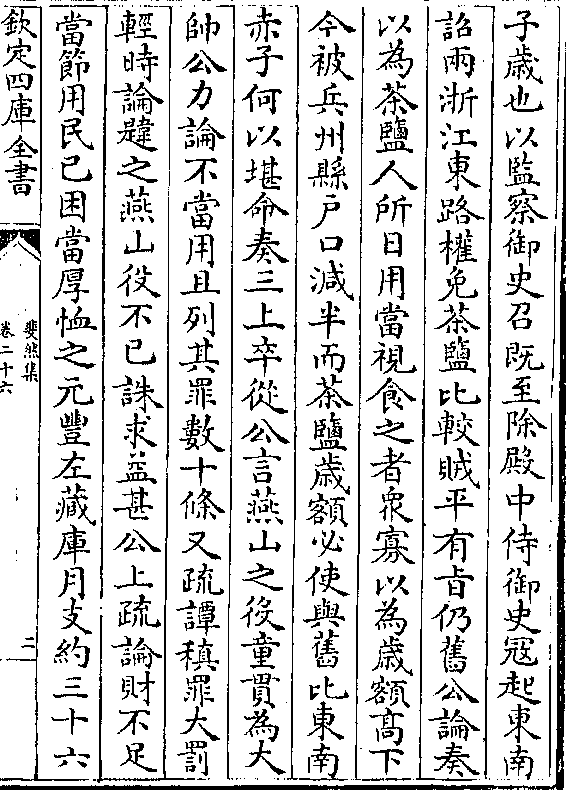 子歲也以監察御史召既至除殿中侍御史寇起東南
詔兩浙江東路權免茶鹽比較賊平有旨仍舊公論奏
以為茶鹽人所日用當視食之者衆寡以為歲額高下
今被兵州縣戸口減半而茶鹽歲額必使與舊比東南
赤子何以堪命奏三上卒從公言燕山之役童貫為大
帥公力論不當用且列其罪數十條又疏譚稹罪大罰
輕時論韙之燕山役不已誅求益甚公上疏論財不足
當節用民已困當厚恤之元豐左藏庫月支約三十六
欽定四庫全書
斐然集
卷二十六
二